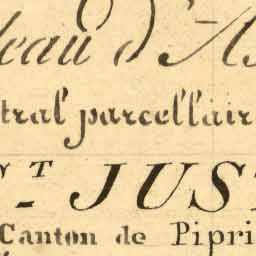 leau d'As
tral parcellair
ST JUST
Canton de Pipri